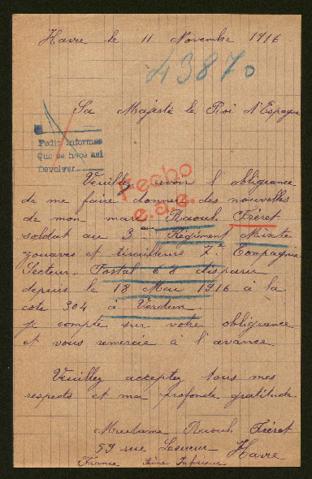 Havre le 11 Novembre 1916
43870
Sa Majesté le Roi d'Espagne
Pedir informes
Que se haga así
Devolver
Fecho
Veuillez avoir l'obligeance
de me faire donner des nouvelles
de mon mari Raoul Fréret
soldat au 3e Régiment Mixte
zouaves et tirailleurs 7e Compagnie
Secteur Postal 68 disparu
depuis le 18 Mai 1916 à la
cote 304 à Verdun
je compte sur votre obligeance
et vous remercie à l'avance.
Veuillez acceptez tous mes
respects et ma profonde gratitude
Madame Raoul Fréret
59 rue Lesueur Havre
France Seine Inférieure